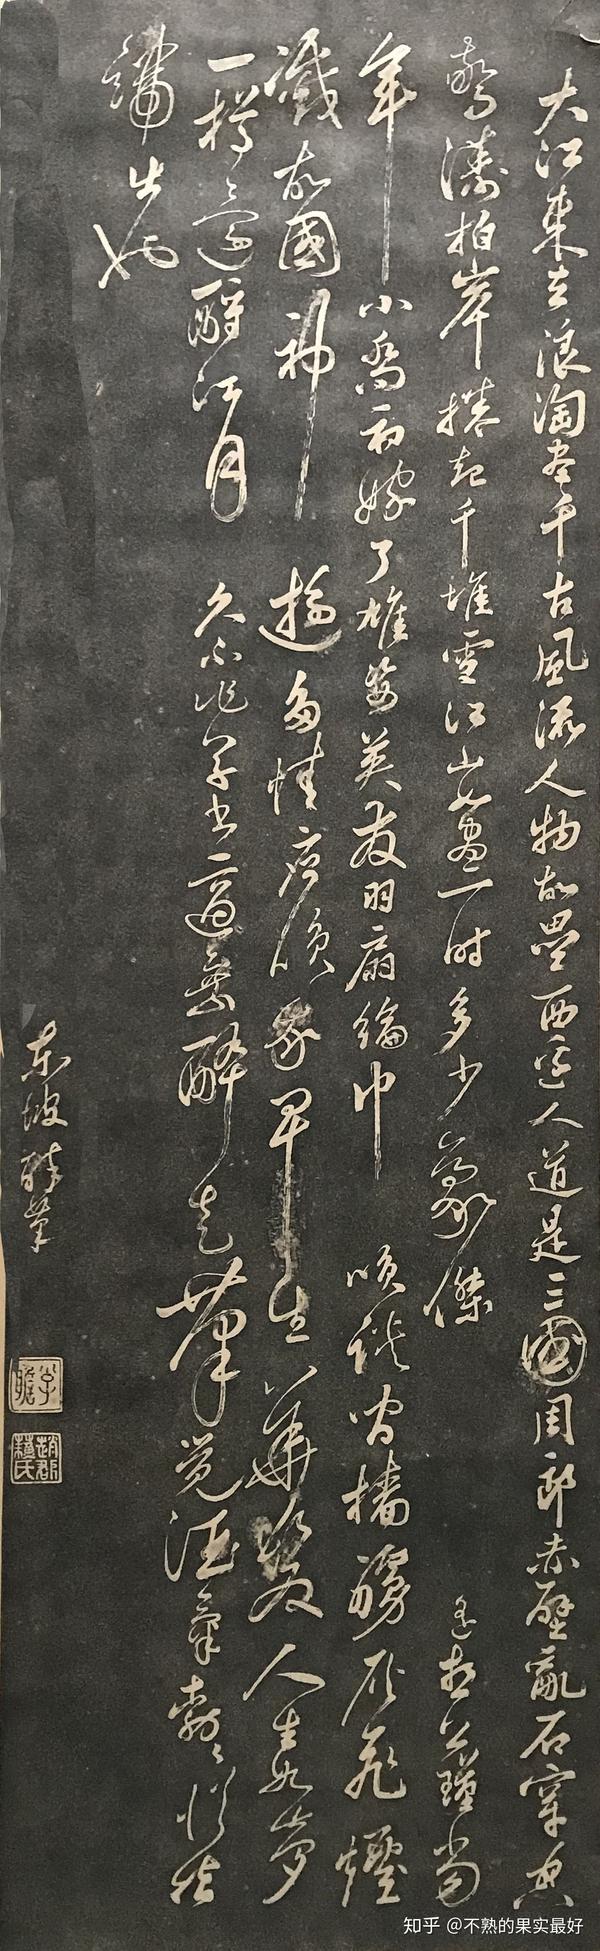 大江東去浪淘盡千古風流人物故壘西邊人道是三國周郎赤壁亂石穿空
驚濤拍岸捲起千堆雪江山如畫一時多少豪傑 遙想公瑾當
年小喬初嫁了雄姿英發羽扇綸巾 笑談間檣艣灰飛煙
滅故國神遊多情應笑我早生華髮人生如夢
一樽還酹江月 久不作草書適乘醉走筆覺酒氣勃勃從指
端出也
東坡醉筆
子瞻
趙郡蘇氏
知乎 @不熟的果实最好